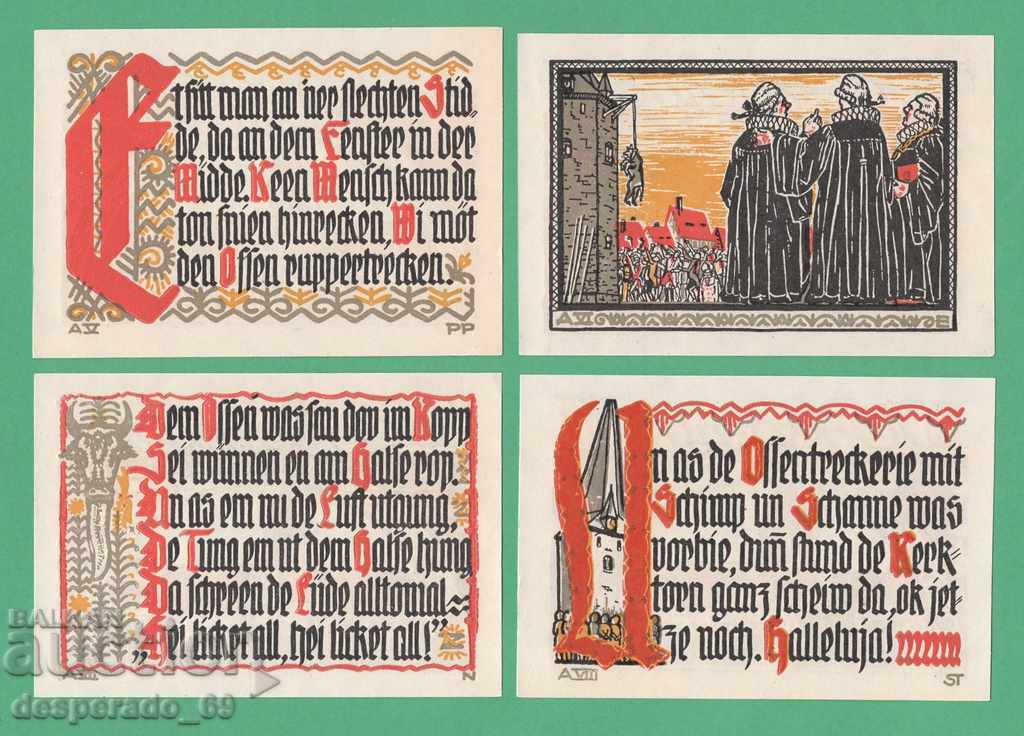 Et sitt man an ner slechten Stid-
de, da an dem Fenster in der
Midde. Keen Mensch kann da
ton fnien hinrecken, Wi möt
den Ossen ruppertrecken.
A V
PP
A VI
E
Dem Ossen was sau dov im Kopp
Sei wünnen en am Halse rop
Un as em nu de Luft utgung,
De Tung em ut dem Halse hung
Da schreen de Lüde alltomal
„Hei licket all, hei licket all!“
N
Un as de Ossentreckerie mit
Schimp un Schanne was
vorbie, dum̄ stund de Kerk-
torn ganz scheiw da, ok jet-
ze noch. Halleluja!
A VIII
ST
BALKAN
auction
desperado_69